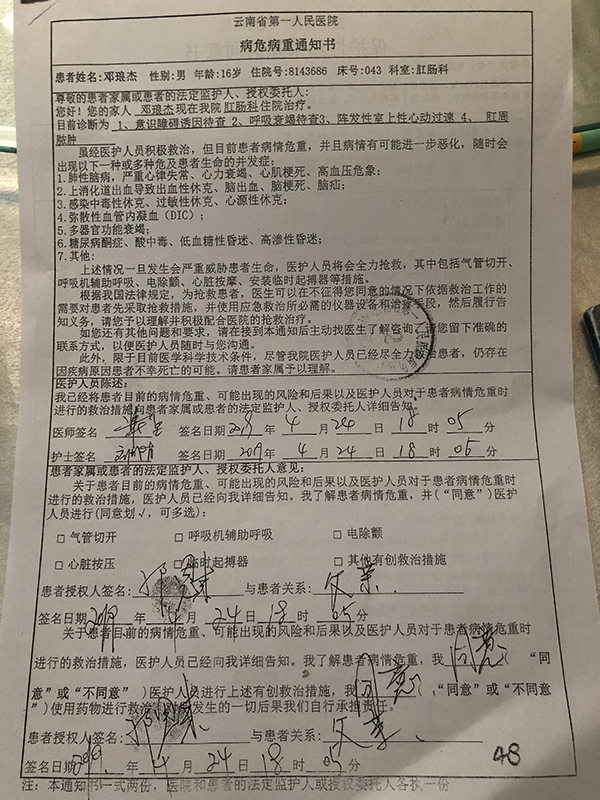 云南省第一人民医院
病危病重通知书
患者姓名:邓琅杰 性别:男 年龄:16岁 住院号:8143686 床号:043 科室:肛肠科
尊敬的患者家属或患者的法定监护人、授权委托人:
您好!您的家人 邓琅杰现在我院肛肠科住院治疗。
目前诊断为 1、意识障碍诱因待查 2、呼吸衰竭待查3、阵发性室上性心动过速 4、 肛周
脓肿
虽经医护人员积极救治,但目前患者病情危重,并且病情有可能进一步恶化,随时会
出现以下一种或多种危及患者生命的并发症:
1.肺性脑病,严重心律失常、心力衰竭、心肌梗死、高血压危象;
2.上消化道出血导致出血性休克、脑出血、脑梗死、脑疝;
3.感染中毒性休克、过敏性休克、心源性休克;
4.弥散性血管内凝血(DIC);
5.多器官功能衰竭;
6.糖尿病酮症、酸中毒、低血糖性昏迷、高渗性昏迷;
7.其他:
上述情况一旦发生会严重威胁患者生命,医护人员将会全力抢救,其中包括气管切开、
呼吸机辅助呼吸、电除颤、心脏按摩、安装临时起搏器等措施。
根据我国法律规定,为抢救患者,医生可以在不征得您同意的情况下依据救治工作的
需要对患者先采取抢救措施,并使用应急救治所必需的仪器设备和治疗手段,然后履行告
知义务,请您予以理解并积极配合医院的抢救治疗。
如您还有其他问题和要求,请在接到本通知后主动找医生了解咨询,请您留下准确的
联系方式,以便医护人员随时与您沟通。
此外,限于目前医学科学技术条件,尽管我院医护人员已经尽全力救治患者,仍存在
因疾病原因患者不幸死亡的可能。请患者家属予以理解。
医护人员陈述:
我已经将患者目前的病情危重、可能出现的风险和后果以及医护人员对于患者病情危重时
进行的救治措施向患者家属或患者的法定监护人、授权委托人详细告知。
医师签名 签名日期2019 年 4 月 24 日 18 时 05 分
护士签名 签名日期2019 年 4 月 24 日 18 时 05 分
患者家属或患者的法定监护人、授权委托人意见:
关于患者目前的病情危重、可能出现的风险和后果以及医护人员对于患者病情危重时
进行的救治措施,医护人员已经向我详细告知。我了解患者病情危重,并(“同意”)医护
人员进行(同意划√,可多选):
□ 气管切开 □ 呼吸机辅助呼吸 □ 电除颤
□ 心脏按压 □ 临时起搏器 □ 其他有创救治措施
患者授权人签名: 与患者关系:
签名日期2019 年 4 月 24 日 18 时 05 分
关于患者目前的病情危重、可能出现的风险和后果以及医护人员对于患者病情危重时
进行的救治措施,医护人员已经向我详细告知。我了解患者病情危重,我 同意 ( “同
意”或“不同意” )医护人员进行上述有创救治措施,我 同意 (“同意”或“不同意
”)使用药物进行救治 发生的一切后果我们自行承担责任。
患者授权人签名: 与患者关系:
签名日期2019. 年 4 月 24 日 18 时 05 分
48
注: 本通知书一式两份,医院和患者的法定监护人或授权委托人各执一份